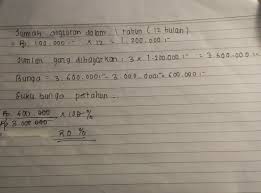 Jumlah angsuran dalam 1 tahun (12 bulan)
= Rp. 100.000 :- × 12 = 1.200.000 :-
Jumlah yang dibayarkan : 3 × 1.200.000 :- = 3.600.000 :-
Bunga = 3.600.000 :- 3.000.000 :- = 600.000 :-
Suku bunga pertahun ...
Rp. 600.000 × 100 %
Rp 3.000.000
20 %